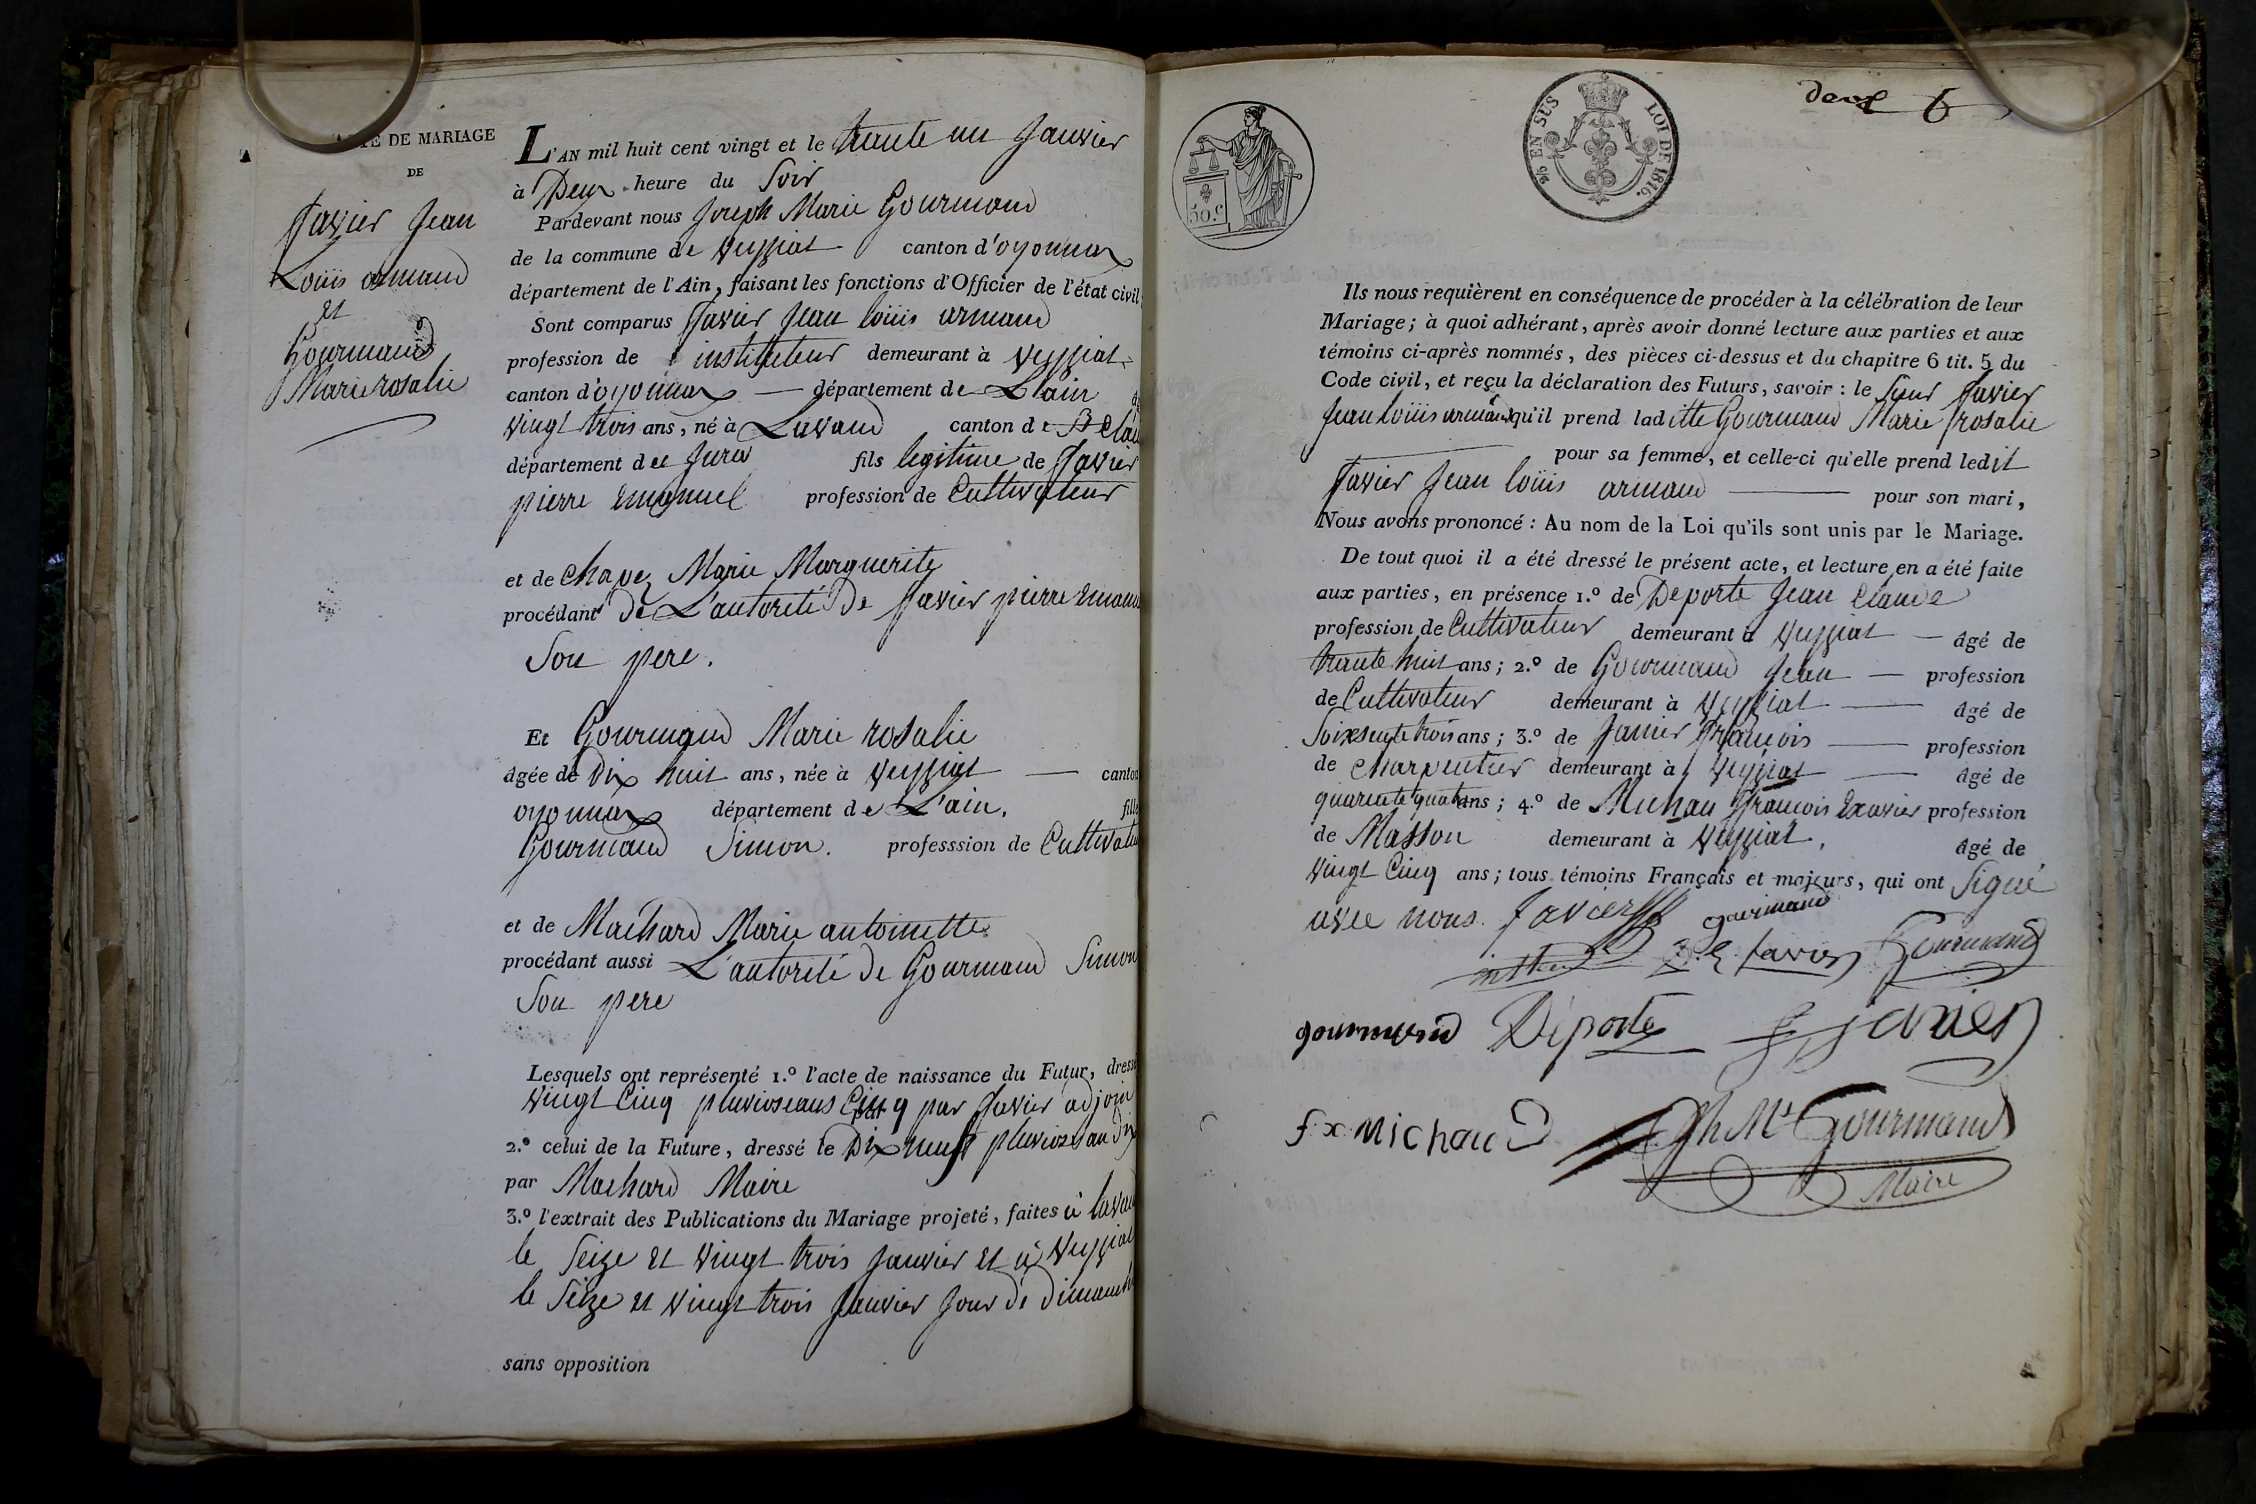 DE MARIAGE
DE
Favier Jean
Louïs armand
et
Gourmand
Marie rosalie
L'AN mil huit cent vingt et le trante un Janvier
à Deux heure du Soir
Pardevant nous Joseph Marie Gourmand
de la commune de Veyziat canton d'oyonnax
département de l'Ain, faisant les fonctions d'Officier de l'état civil
Sont comparus Favier Jean loüis armand
profession de instituteur demeurant à Veyziat
canton d'oyonnax — département de L'ain
vingt trois ans, né à Lavand canton de St Clau
département de Jura fils legitime de Favier
pierre Emanuel profession de Cultivateur
et de Chavez Marie Marguerite
procédant de L'autorité de Favier pierre Emanu
Son pere.
Et Gourmand Marie rosalie
âgée de Dix huit ans, née à Veyziat — canton
oyonnax département de L'ain. fille
Gourmand Simon. professsion de Cultivateu
et de Machard Marie antoinette
procédant aussi L'autorité de Gourmand Simon
Son pere
Lesquels ont représenté 1.º l'acte de naissance du Futur, dressé
vingt Cinq pluviose ans Cinq par Favier adjoin
2.º celui de la Future, dressé le Dix neuf pluviose an Dix
par Machard Maire
3.º l'extrait des Publications du Mariage projeté, faites à lavan
le Seize et vingt trois Janvier et à Veyziat
le Seize et vingt trois Janvier Jour de dimanche
sans opposition
50.c
25 EN SUS
LOI DE 1816.
deux 6
Ils nous requièrent en conséquence de procéder à la célébration de leur
Mariage; à quoi adhérant, après avoir donné lecture aux parties et aux
témoins ci-après nommés, des pièces ci-dessus et du chapitre 6 tit. 5 du
Code civil, et reçu la déclaration des Futurs, savoir: le Sieur Favier
Jean loüis armand qu'il prend laditte Gourmand Marie rosalie
pour sa femme, et celle-ci qu'elle prend ledit
Favier Jean loüis armand — pour son mari,
Nous avons prononcé: Au nom de la Loi qu'ils sont unis par le Mariage.
De tout quoi il a été dressé le présent acte, et lecture en a été faite
aux parties, en présence 1.º de Deporte Jean Claude
profession de Cultivateur demeurant à Veyziat — âgé de
trante huit ans; 2.º de Gourmand Jean — profession
de Cultivateur demeurant à Veyziat — âgé de
Soixsente trois ans; 3.º de Janier François — profession
de charpentier demeurant à Veyziat — âgé de
quarente quatre ans; 4.º de Michau François Exavier profession
de Masson demeurant à Veyziat. âgé de
vingt Cinq ans; tous témoins Français et majeurs, qui ont Signé
avec nous. Favier gourmand
favier Gourmand
gourmend Déporte janier
fx michaud Jph Me Gourmand
Maire